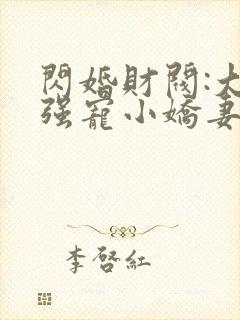 閃婚財閥:大
强寵小嬌妻
李啓紅